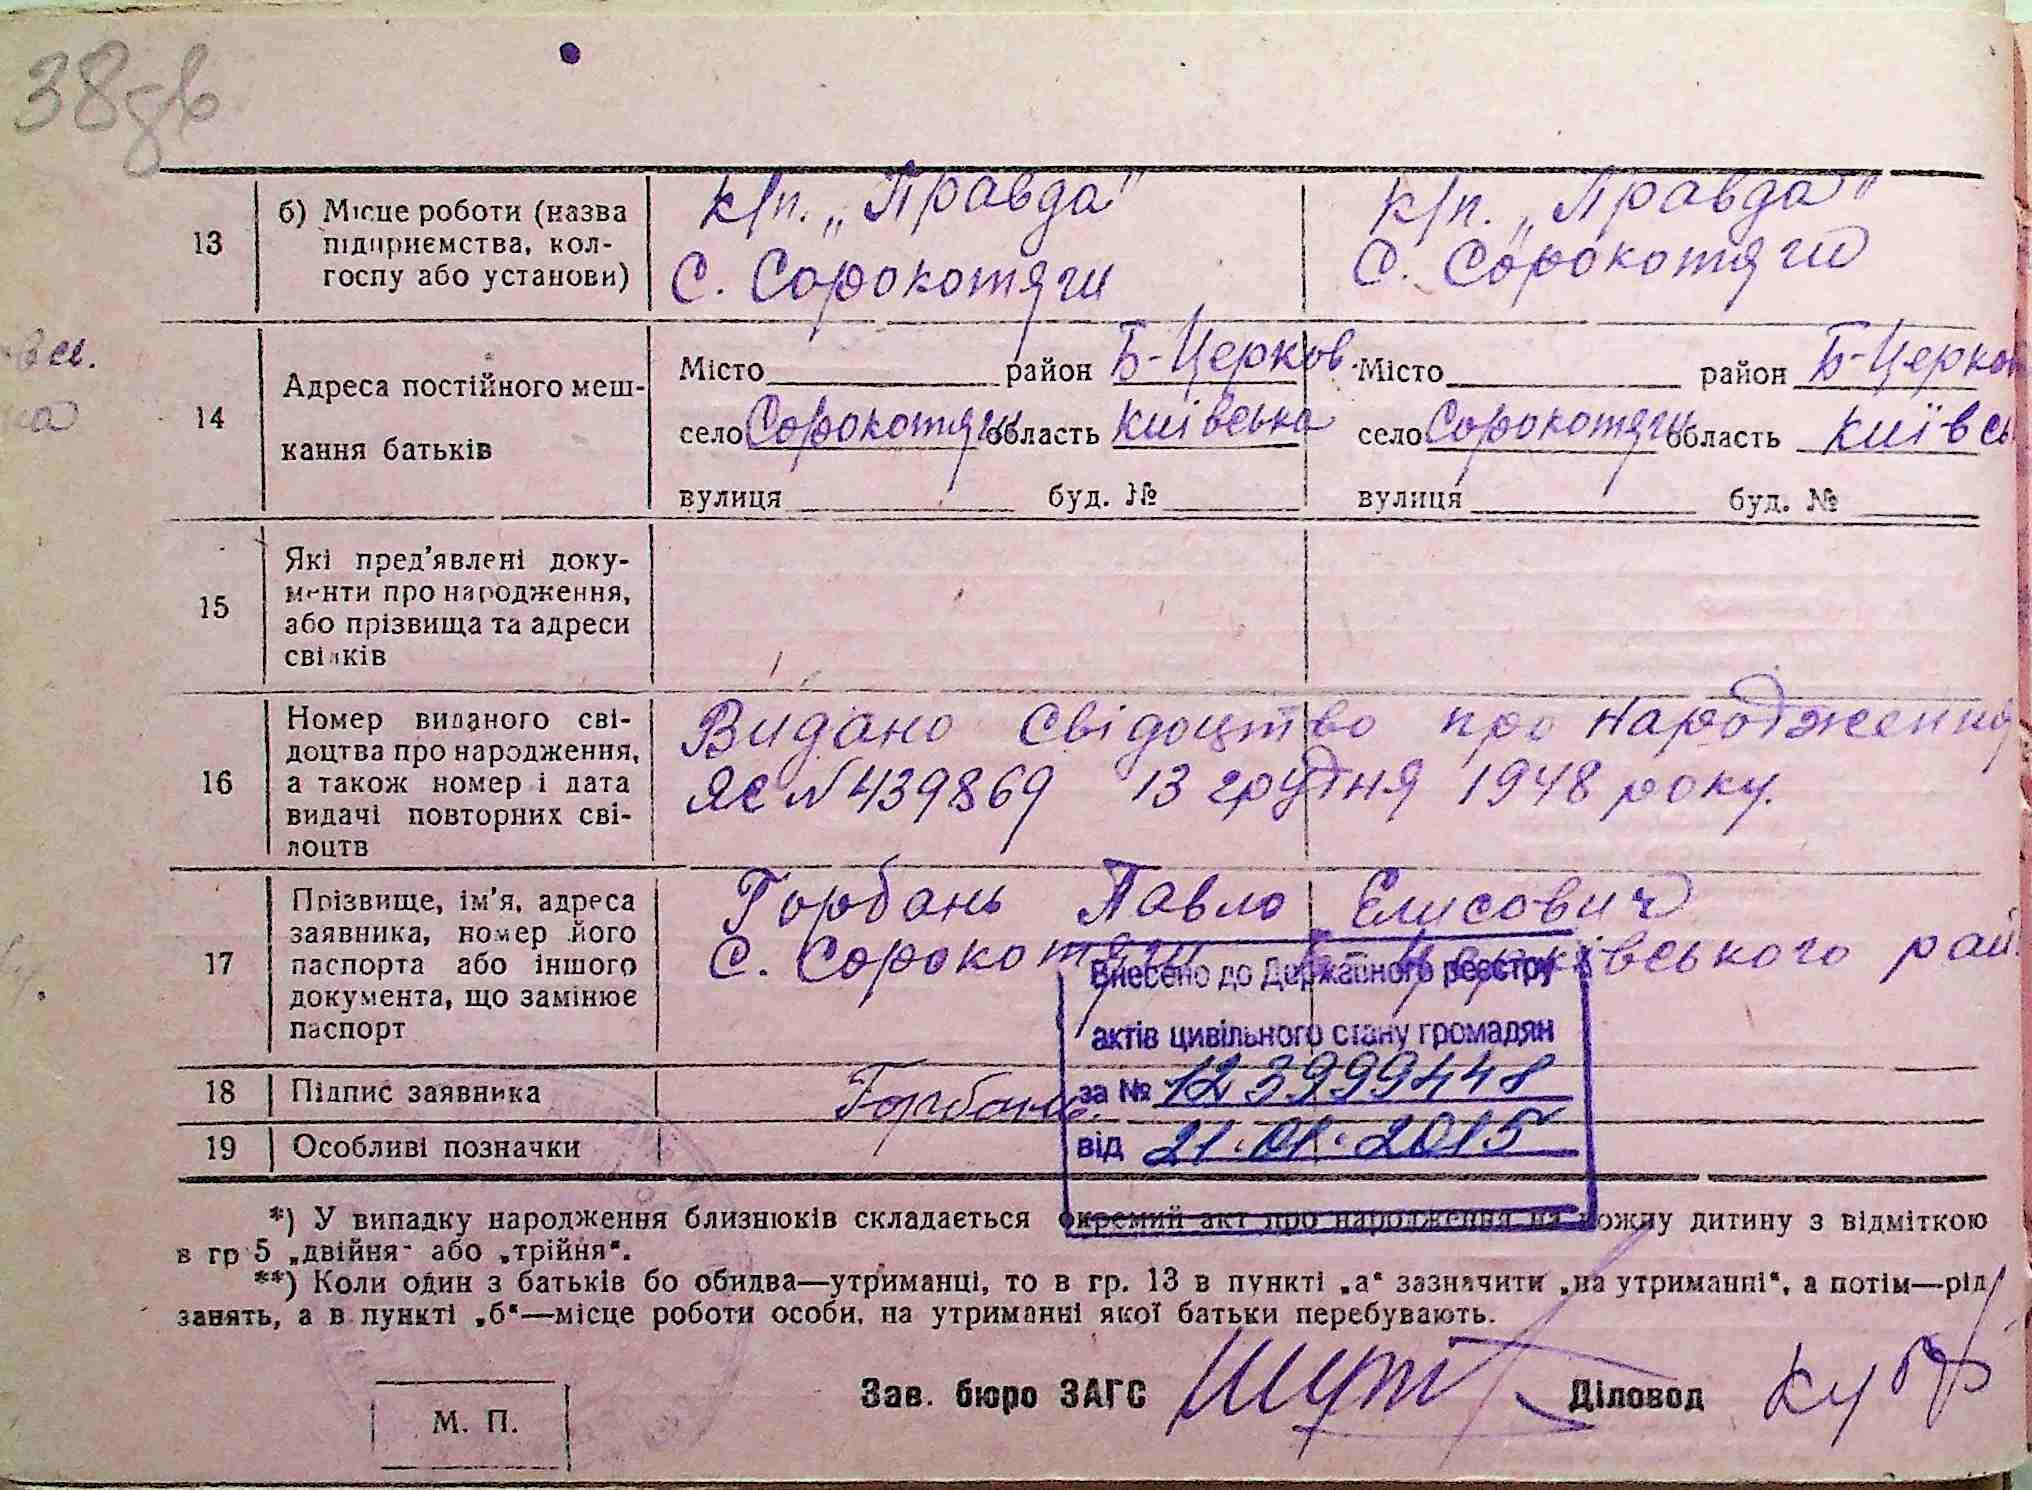 38зв
13
б) Місце роботи (назва
підприємства, кол-
госпу або установи)
к/п. „Правда"
с. Сорокотяги
к/п. „Правда"
с. Сорокотяги
14
Адреса постійного меш-
кання батьків
Місто район Б-Церков
село Сорокотяги область Київська
вулиця буд. №
Місто район Б-Церков
село Сорокотяги область Київсь
вулиця буд. №
15
Які пред'явлені доку-
менти про народження,
або прізвища та адреси
свідків
16
Номер виданого сві-
доцтва про народження,
а також номер і дата
видачі повторних сві-
доцтв
Видано свідоцтво про народження
ЯЄ №439869 13 грудня 1948 року.
17
Прізвище, ім'я, адреса
заявника, номер його
паспорта або іншого
документа, що замінює
паспорт
Горбань Павло Елисович
с. Сорокотяги Б-Церківського рай.
Внесено до Державного реєстру
актів цивільного стану громадян
за № 123999448
від 21.01.2015
18 Підпис заявника
Горбань.
19 Особливі позначки
*) У випадку народження близнюків складається окремий акт про народження на кожну дитину з відміткою
в гр 5 „двійня" або „трійня".
**) Коли один з батьків бо обидва—утриманці, то в гр. 13 в пункті „а" зазначити „на утриманні", а потім—рід
занять, а в пункті „б"—місце роботи особи, на утриманні якої батьки перебувають.
М. П.
Зав. бюро ЗАГС
Діловод